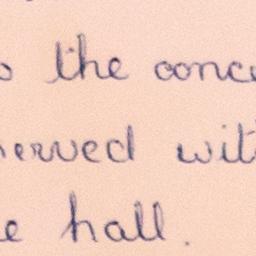 o the conce
erved wit
e hall.